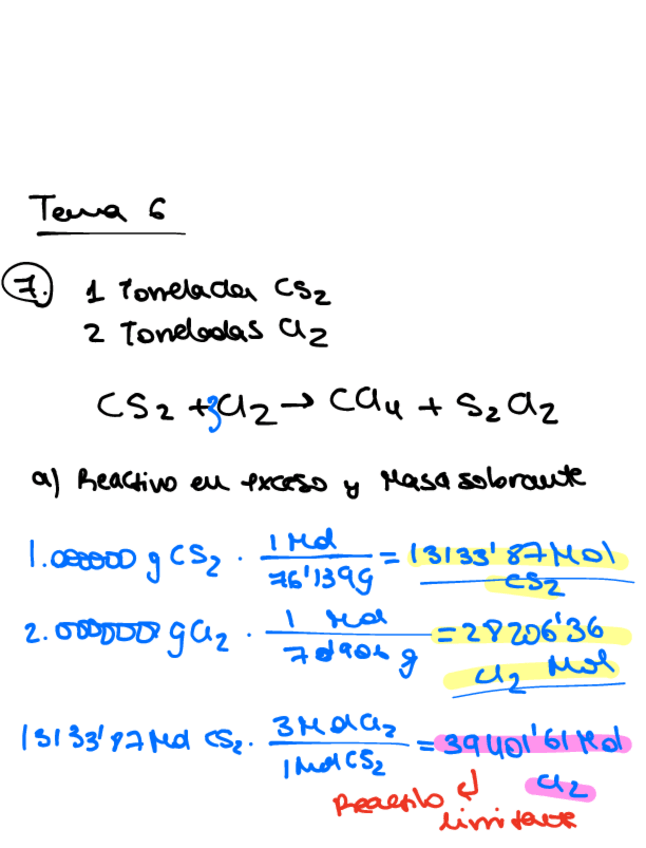 Tema 6
7. 1 Toneladas CS2
2 Toneladas Cl2
CS2 + 3Cl2 → CCl4 + S2Cl2
a) Reactivo en exceso y Masa sobrante
1.000000 g CS2 · 1 Mol / 76'139 g = 13133'87 Mol CS2
2.000000 g Cl2 · 1 Mol / 70'906 g = 28206'36 Cl2 Mol
13133'87 Mol CS2 · 3 Mol Cl2 / 1 Mol CS2 = 39401'61 Mol Cl2
Reactivo limitante